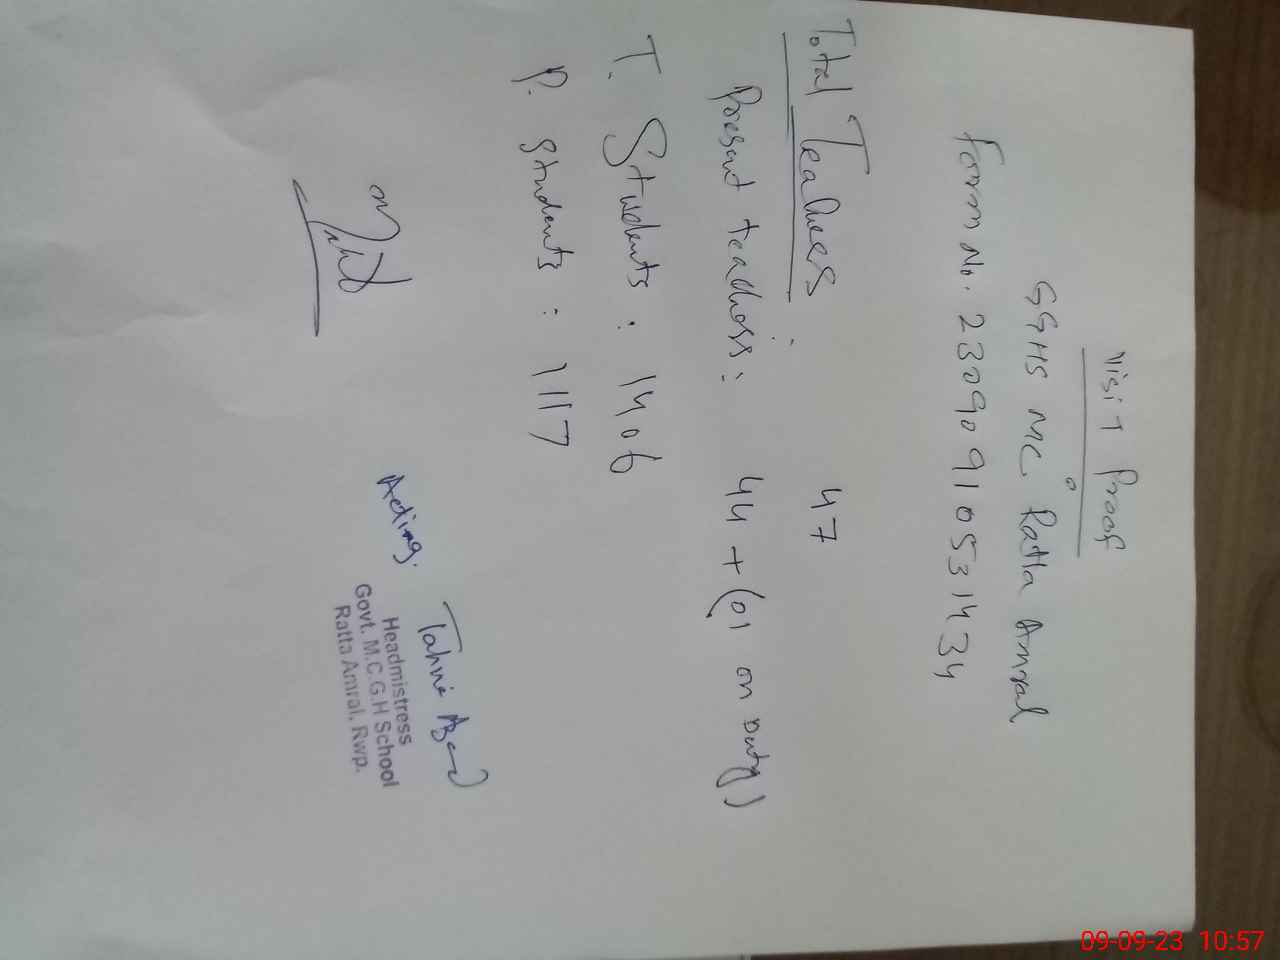 Visit Proof
GGHS MC Ratta Amral
Form No. 23090910531434
Total Teachers : 47
Present teachers : 44 + (01 on Duty)
T. Students : 1406
P. Students : 1117
Acting.
Headmistress
Govt. M.C.G.H School
Ratta Amral, Rwp.
09-09-23 10:57